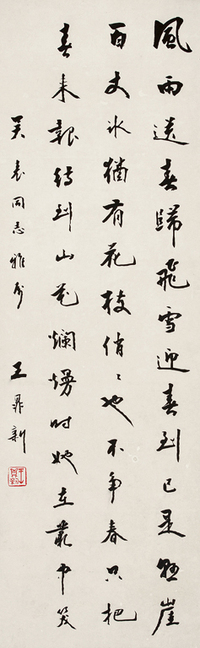 風雨送春歸飛雪迎春到已是懸崖
百丈冰猶有花枝俏〻也不争春只把
春来報待到山花爛熳时她在叢中笑
同志雅属 王鼎新